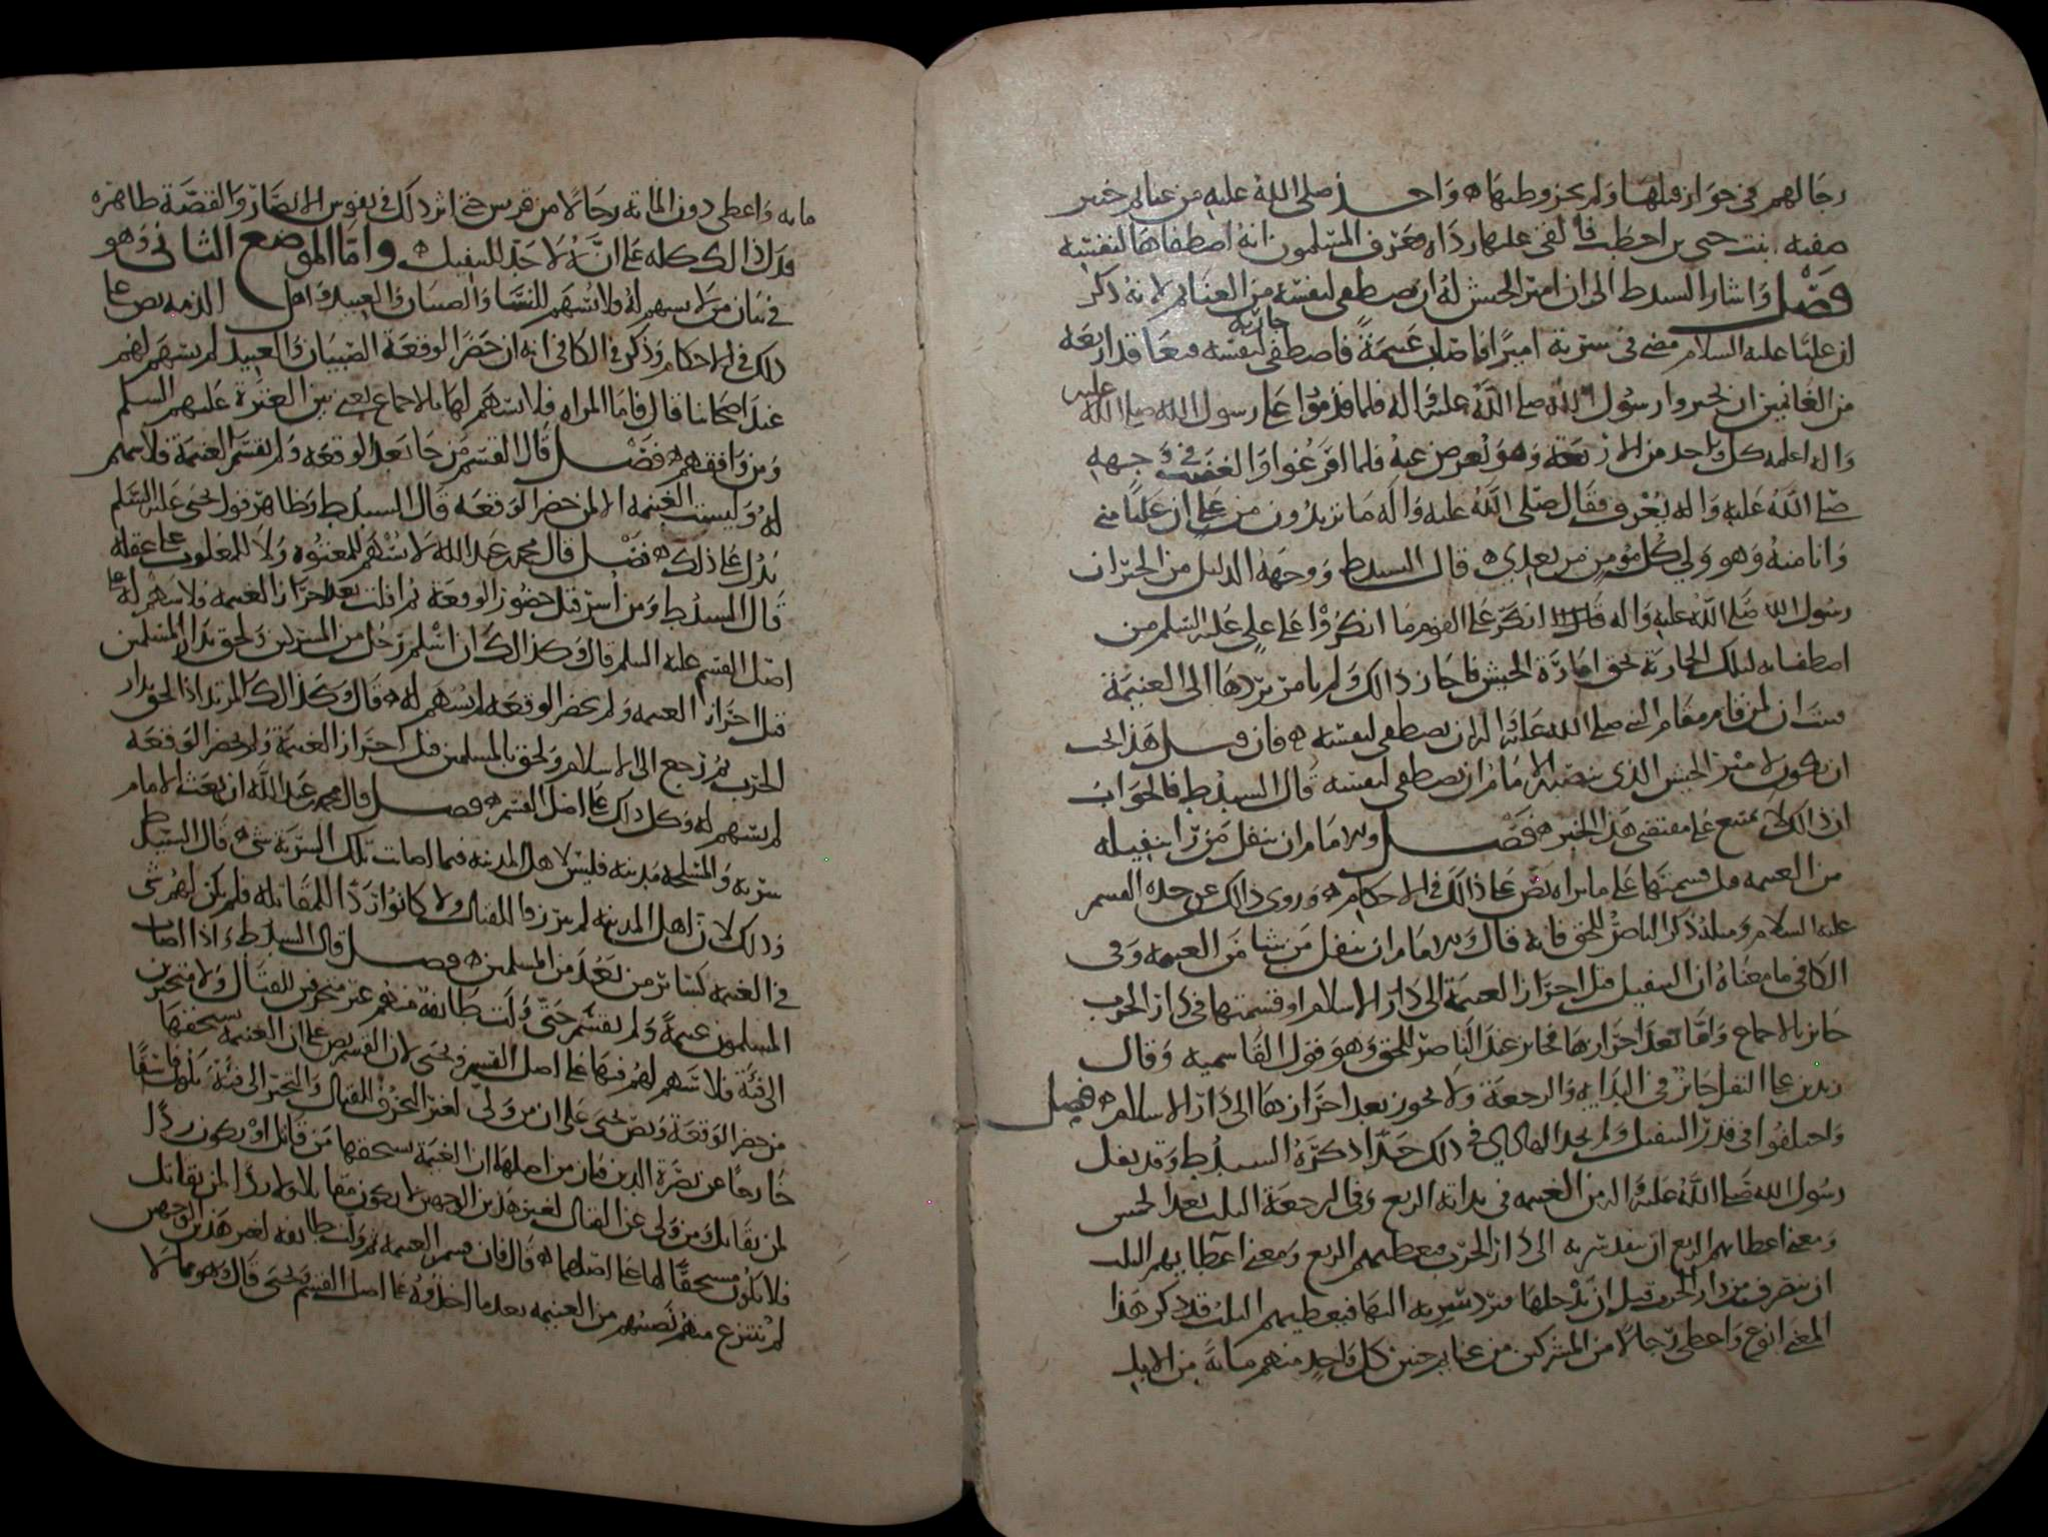 رجالهم في جواز قتلها ولم يجز وطيها ۞ واخذ صلى الله عليه من غنايم خيبر
صفية بنت حيي بن احطب فالقى عليها رداه فعرف المسلمون انه اصطفاها لنفسه
فصل واشار السيد ط الى ان امير الجيش له ان يصطفى لنفسه من الغنايم لانه ذكر
ان عليا عليه السلام مضى في سرية اميرا فاصاب غنيمة فاصطفى لنفسه جارية فتعاقد اربعة
من الغانمين ان يخبروا رسول الله صلى الله عليه واله فلما قدموا على رسول الله صلى الله عليه
واله اعلمه كل واحد من الاربعة وهو يعرض عنه فلما افرغوا والغضب في وجهه
صلى الله عليه واله يعرف فقال صلى الله عليه واله ما تريدون من علي ان عليا مني
وانا منه وهو ولي كل مؤمن من بعدي ۞ قال السيد ط ووجهه الدليل من الخبر ان
رسول الله صلى الله عليه واله انكر على القوم ما انكروا على علي عليه السلم من
اصطفايه لتلك الجارية بحق امارة الجيش فاجاز ذالك ولم يامر بردها الى الغنيمة
فبت ان لمن قام مقام النبي صلى الله عليه واله ان يصطفى لنفسه ۞ فان قيل هذا يجب
ان يكون لامير الجيش الذي ينصبه الامام ان يصطفى لنفسه قال السيد ط فالجواب
ان ذالك لا يمتنع على مقتضى هذا الخبر ۞ فصل وللامام ان ينفل من را تنفيله
من الغنيمة قبل قسمتها على ما يراه نص على ذالك في الاحكام ۞ وروى ذالك عن جده القسم
عليه السلام ومثله ذكر الناصر للحق فانه قال وللامام ان ينفل من شا من الغنيمة وفي
الكافي ما معناه ان التنفيل قبل احراز الغنيمة الى دار الاسلام او قسمتها في دار الحرب
جايز بالاجماع واما بعد احرازها فجايز عند الناصر للحق وهو قول القاسمية وقال
زيد بن علي النفل جايز في البداية والرجعة ولا يجوز بعد احرازها الى دار الاسلام ۞ فصل
واختلفوا في قدر التنفيل ولم يحد الهادي في ذلك حدا ذكره السيد ط وقد نفل
رسول الله صلى الله عليه واله من الغنيمة في بداته الربع وفي الرجعة الثلث بعد الخمس
ومعنى اعطايهم الربع ان ينفذ سرية الى دار الحرب فيعطيهم الربع ومعنى اعطايهم الثلث
ان ينصرف من دار الحرب قبل ان يدخلها فيرد سرية اليها فيعطيهم الثلث قد ذكر هذا
المعنى ابو ع واعطى رجالا من المشركين من غنايم حنين كل واحد منهم ماية من الابل
ماية واعطى دون الماية رجالا من قريش حتى اثر ذلك في نفوس الانصار والقصة ظاهرة
فدل ذالك كله على انه لا حد للتنفيل ۞ واما الموضع الثاني وهو
في بيان من لا يسهم له ولا يسهم للنسا والصبيان والعبيد واهل الذمة نص على
ذلك في الاحكام وذكر في الكافي انه ان حضر الوقعة الصبيان والعبيد لم يسهم لهم
عند اصحابنا قال فاما المراة فلا يسهم لها بالاجماع يعني بين العترة عليهم السلم
ومن وافقهم ۞ فصل قال القسم من جا بعد الوقعة ولم تقسم الغنيمة فلا سهم
له وليست الغنيمة الا لمن حضر الوقعة قال السيد ط وظاهر قول يحيى عليه السلم
يدل على ذلك ۞ فصل قال محمد بن عبد الله لا يسهم للمعتوه ولا للمغلوب على عقله
قال السيد ط ومن اسر قبل حضور الوقعة ثم افلت بعد احراز الغنيمة فلا سهم له على
اصل القسم عليه السلم قال وكذالك ان اسلم رجل من المشركين ولحق بدار المسلمين
قبل احراز الغنيمة ولم يحضر الوقعة لم يسهم له ۞ قال وكذالك المرتد اذا لحق بدار
الحرب ثم رجع الى الاسلام ولحق بالمسلمين قبل احراز الغنيمة ولم يحضر الوقعة
لم يسهم له وكل ذلك على اصل القسم ۞ فصل قال محمد بن عبد الله ان بعث الامام
سرية والمسلحة مدينة فليس لاهل المدينة فيما اصابت تلك السرية شي ۞ قال السيد ط
وذلك لان اهل المدينة لم يبرزوا للقتال ولا كانوا ردا للمقاتلة فلم يكن لهم شي
في الغنيمة كسائر من بعد من المسلمين ۞ فصل قال السيد ط واذا اصاب
المسلمون غنيمة ولم تقسم حتى ولت طائفة منهم غير متحرفين للقتال ولا متحيزين
الى فئة فلا سهم لهم فيها على اصل القسم ويحيى لان القسم نص على ان الغنيمة يستحقها
من حضر الوقعة ونص يحيى على ان من ولى لغير التحرف للقتال والتحيز الى فئة يكون فاسقا
خارجا عن نصرة الدين فبان من اصلهما ان الغنيمة يستحقها من قاتل او يكون ردا
لمن يقاتل ومن ولى عن القتال لغير هذين الوجهين لا يكون مقاتلا ولا ردا لمن يقاتل
فلا يكون مستحقا لها على اصلهما ۞ قال فان قسم الغنيمة ثم ولت طايفة لغير هذين الوجهين
لم ينتزع منهم نصيبهم من الغنيمة بعد ما اخذوه على اصل القسم ويحيى قال وهو مما لا